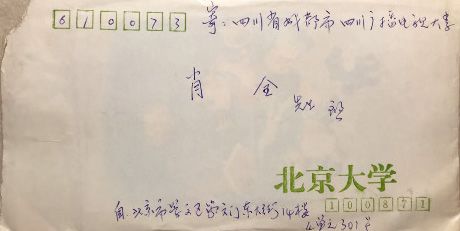 610073
寄:四川省成都市四川广播电视大学
肖全 先生 部
北京大学
100871
自:北京市崇文区崇文门东大街14楼
301号